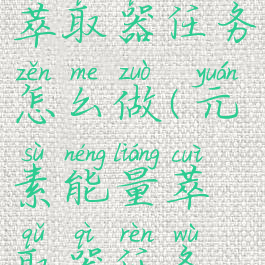 萃取器任务
zěn me zuò yuán
怎么做(元
sù néng liàng cuì
素能量萃
qǔ qì rèn wù
取器任务